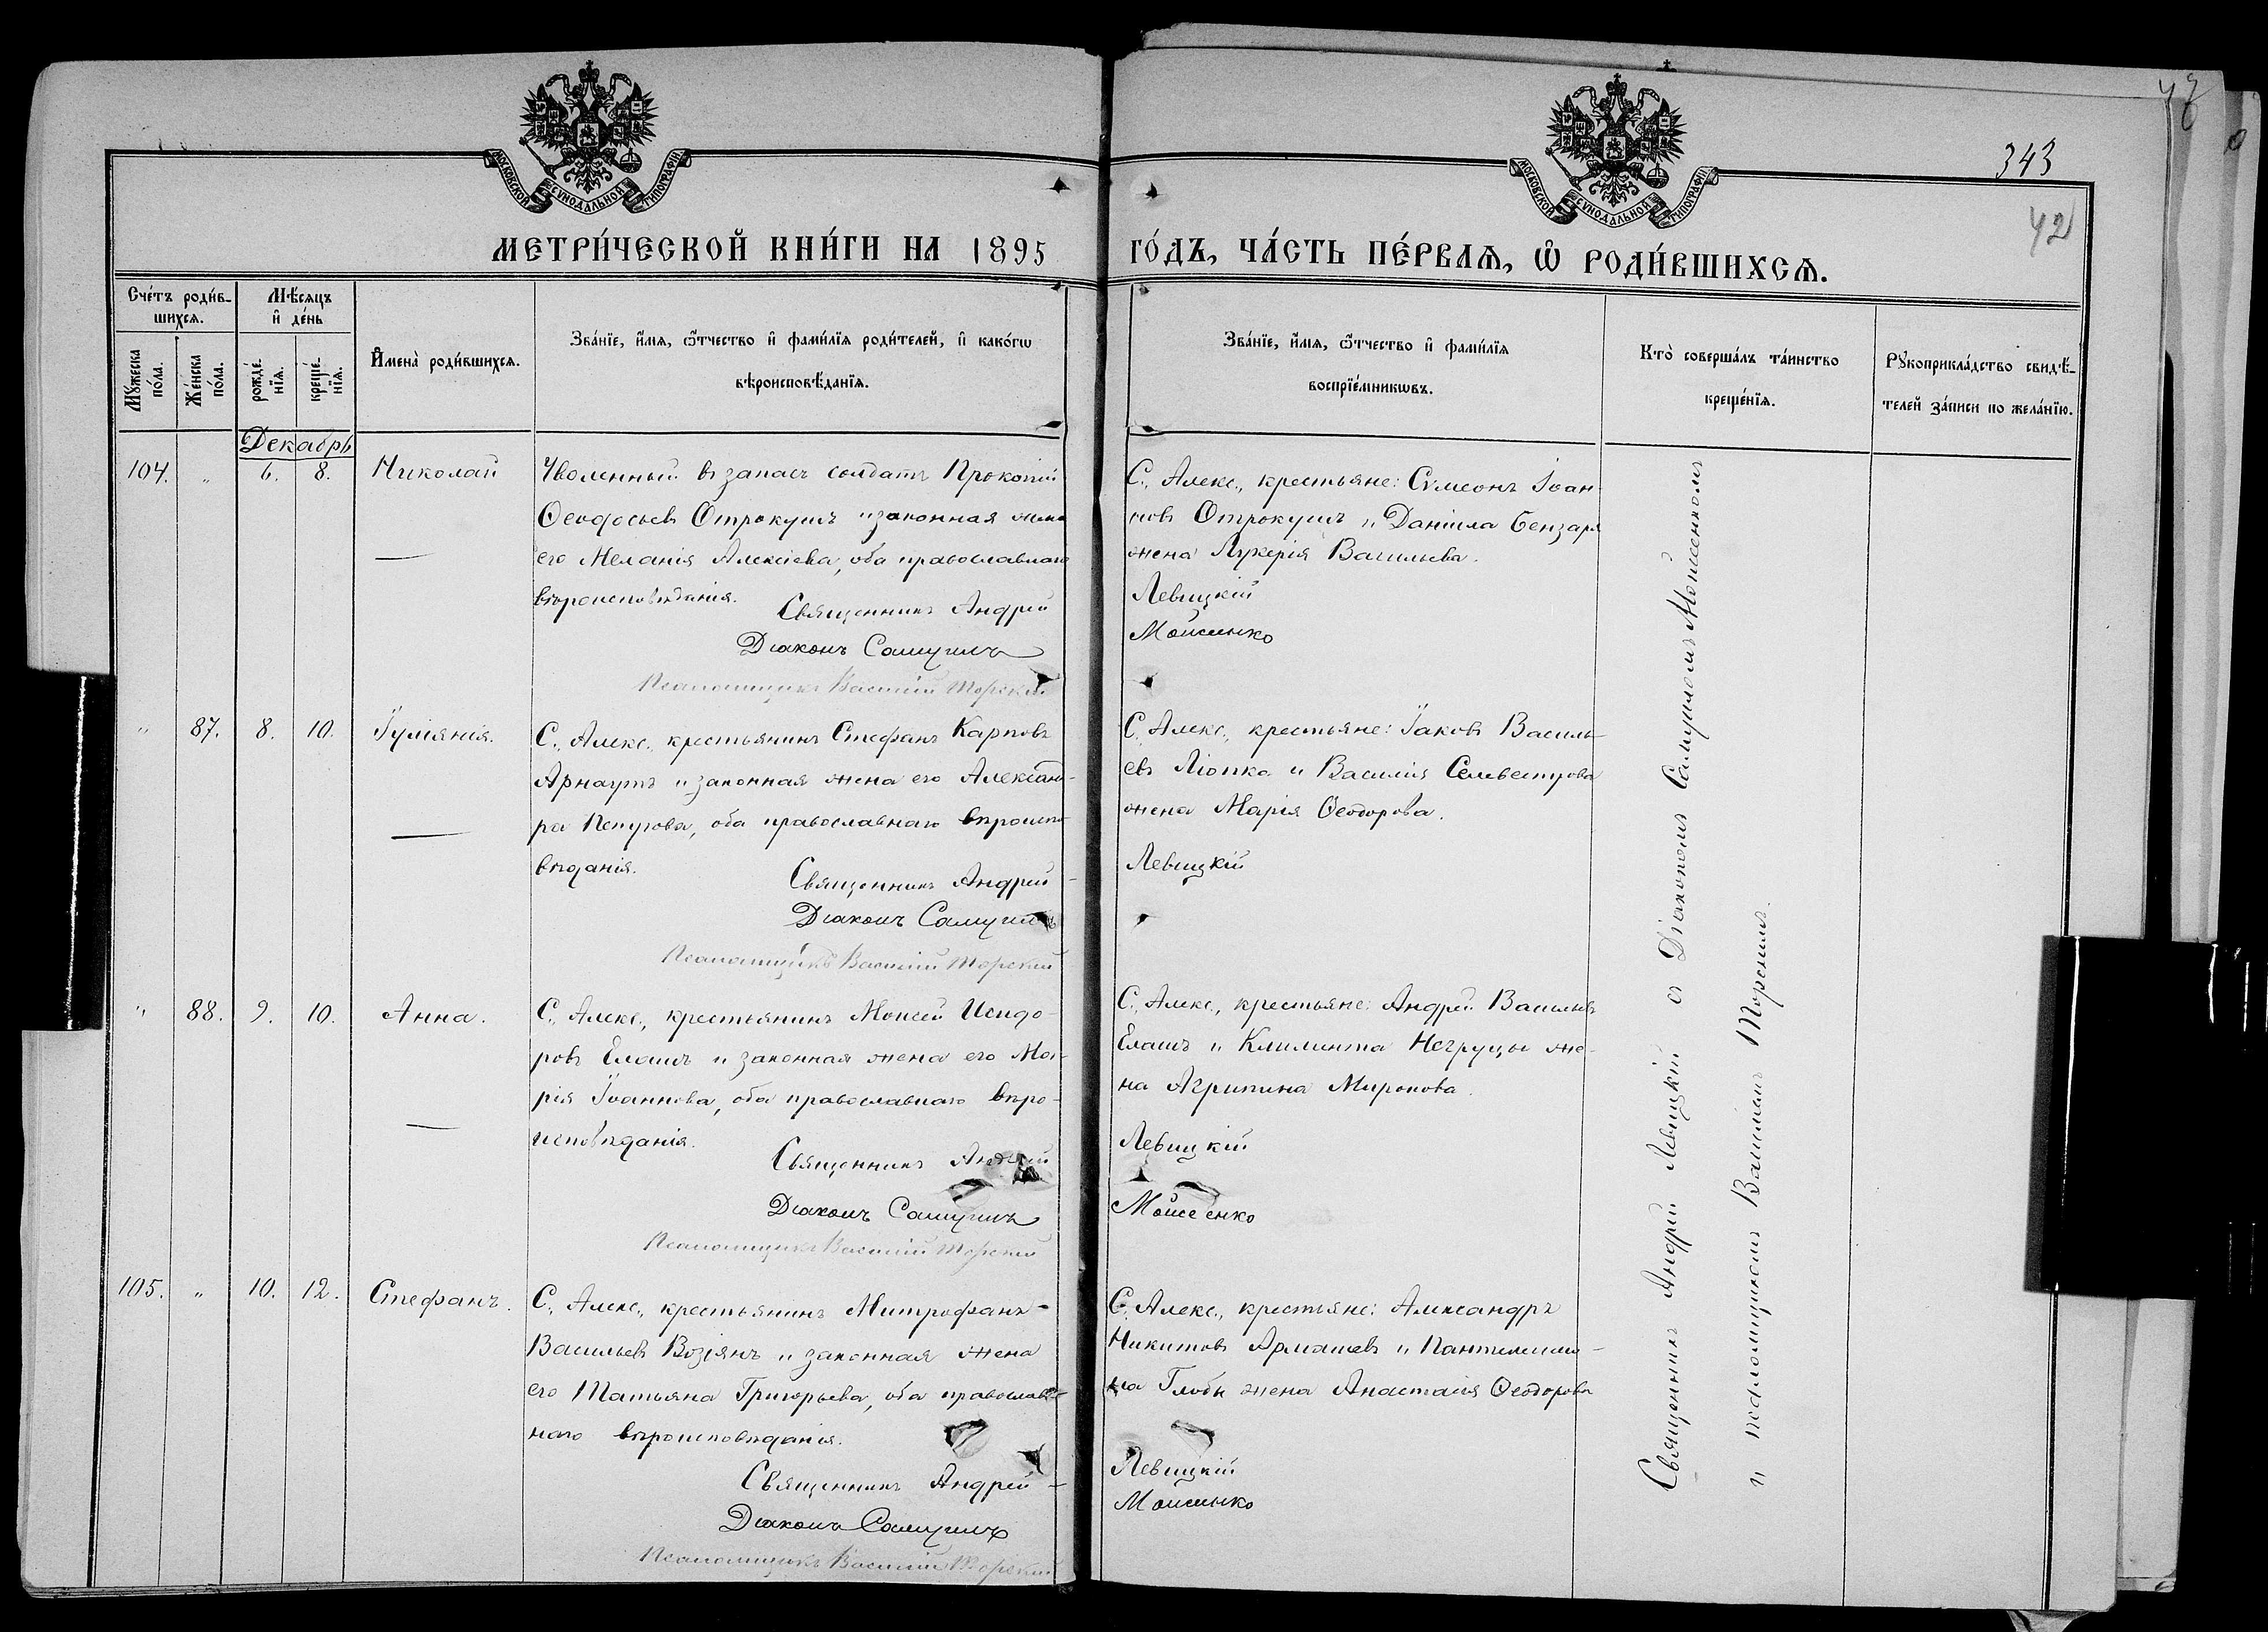 МОСКОВСКОЙ СѴНОДАЛЬНОЙ ТИПОГРАФІИ
МОСКОВСКОЙ СѴНОДАЛЬНОЙ ТИПОГРАФІИ
343
42
МЕТРИ́ЧЕСКОЙ КНИ́ГИ НА 1895 ГО́ДЪ, ЧА́СТЬ ПЕ́РВАѦ, Ѽ РОДИ́ВШИХСѦ.
Сче́тъ роди́в-
шихсѧ.
Мѣ́сѧцъ
и҆ де́нь
Мꙋ́жеска
по́ла.
Же́нска
по́ла.
рожде́-
нїѧ.
креще́-
нїѧ.
И҆мена̀ роди́вшихсѧ.
Зва́нїе, и҆́мѧ, ѻ҆́тчество и҆ фами́лїѧ роди́телей, и҆ како́гѡ
вѣроисповѣ́данїѧ.
Зва́нїе, и҆́мѧ, ѻ҆́тчество и҆ фами́лїѧ
воспрїе́мникѡвъ.
Кто̀ соверша́лъ та́инство
креще́нїѧ.
Рꙋкоприкла́дство свидѣ́-
телей за́писи по жела́нїю.
Декабрь
104. " 6. 8. Николай
Уволенный въ запасъ солдатъ Прокопій
Ѳеодосьевъ Отрокушъ и законная жена
его Меланія Алексіева, оба православнаго
вѣроисповѣданія.
Священникъ Андрей
Діаконъ Самуилъ
Псаломщикъ Василій Торскій
С., Алекс., крестьяне: Сѵмеонъ Іоан-
новъ Отрокушъ и Даніила Бензаря
жена Лукерія Васильева.
Левицкій
Мойсеенко
" 87. 8. 10. Іуліянія.
С., Алекс., крестьянинъ Стефанъ Карповъ
Арнаутъ и законная жена его Александ-
ра Петрова, оба православнаго вѣроиспо-
вѣданія.
Священникъ Андрей
Діаконъ Самуилъ
Псаломщикъ Василій Торскій
С., Алекс., крестьяне: Іаковъ Василь-
евъ Ліопка и Василія Селвестрова
жена Марія Ѳеодорова.
Левицкій
" 88. 9. 10. Анна.
С., Алекс., крестьянинъ Моисей Исидо-
ровъ Елашъ и законная жена его Ма-
рія Іоаннова, оба православнаго вѣро-
исповѣданія.
Священникъ Андрей
Діаконъ Самуилъ
Псаломщикъ Василій Торскій
С., Алекс., крестьяне: Андрей Васильевъ
Елашъ и Климинта Негруцы же-
на Агрипина Миронова.
Левицкій
Мойсеенко
105. " 10. 12. Стефанъ.
С., Алекс., крестьянинъ Митрофанъ
Васильевъ Возіянъ и законная жена
его Татьяна Григорьева, оба православ-
наго вѣроисповѣданія.
Священникъ Андрей
Діаконъ Самуилъ
Псаломщикъ Василій Торскій
С., Алекс., крестьяне: Александръ
Никитовъ Армашевъ и Пантелеимо-
на Глобы жена Анастасія Ѳеодорова
Левицкій
Мойсеенко
Священникъ Андрей Левицкій съ Діакономъ Самуиломъ Мойсеенкомъ
и псаломщикомъ Василіемъ Торскимъ.